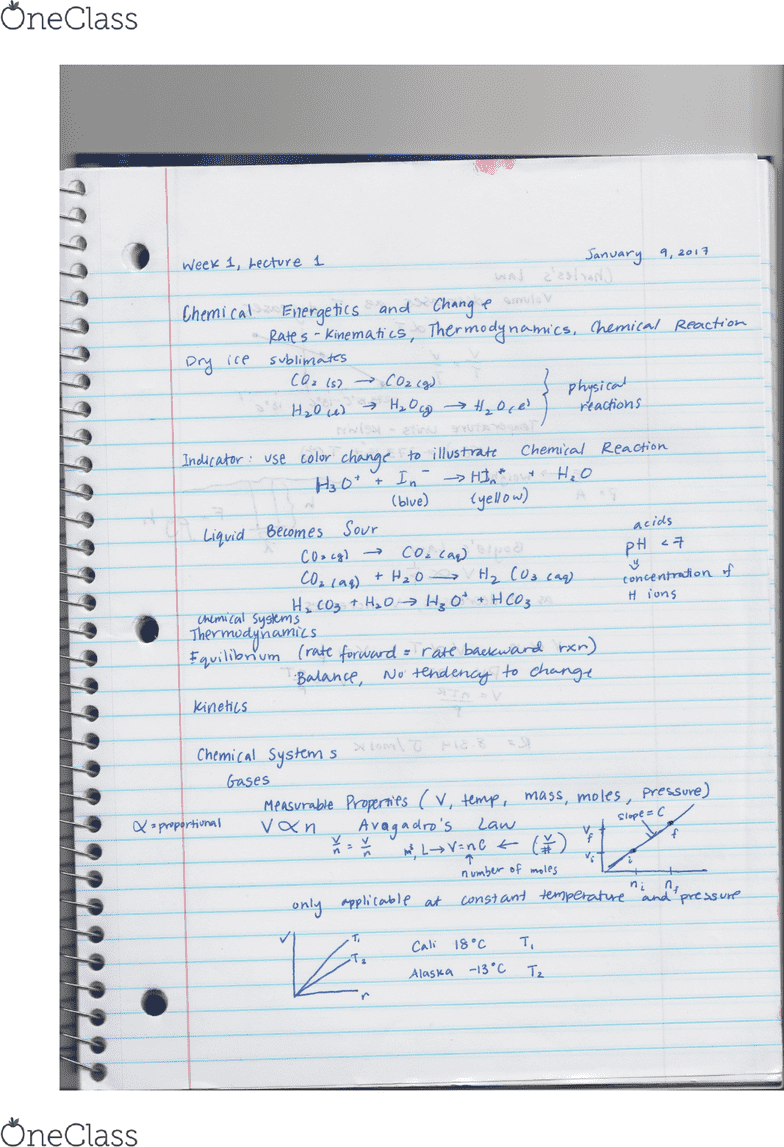 OneClass
Week 1, Lecture 1 January 9, 2017
Chemical Energetics and Change
Rates - Kinematics, Thermodynamics, Chemical Reaction
Dry ice sublimates
CO₂ (s) → CO₂ (g)
H₂O (l) → H₂O (g) → H₂O (l) } physical reactions
Indicator: use color change to illustrate Chemical Reaction
H₃O⁺ + In⁻ → HIn⁺ H₂O
(blue) (yellow)
Liquid Becomes Sour acids
CO₂ (g) → CO₂ (aq) pH < 7
CO₂ (aq) + H₂O → H₂CO₃ (aq) concentration of
H₂CO₃ + H₂O → H₃O⁺ + HCO₃ H ions
Chemical Systems
Thermodynamics
Equilibrium (rate forward = rate backward rxn)
Balance, No tendency to change
Kinetics
Chemical Systems
Gases
Measurable Properties (V, temp, mass, moles, pressure)
α = proportional V α n Avagadro's Law
V/n = V/n m³, L → V = nC ← (V/#)
number of moles
slope = C
Vf
f
Vi
i
ni nf
only applicable at constant temperature and pressure
V T₁ Cali 18°C T₁
T₂ Alaska -13°C T₂
r
OneClass